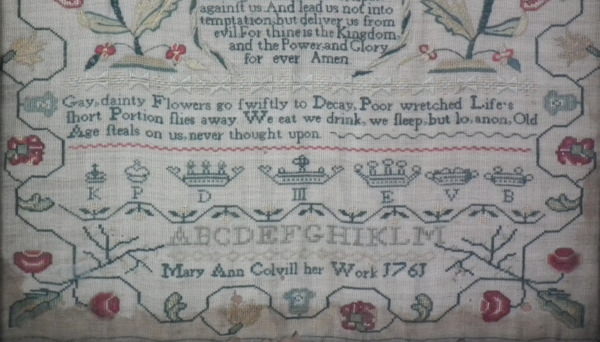 againſt us And lead us not into
temptation, but deliver us from
evil For thine is the Kingdom
and the Power, and Glory
for ever Amen
Gay, dainty Flowers go ſwiftly to Decay, Poor wretched Life's
ſhort Portion flies away. We eat we drink, we ſleep, but lo, anon, Old
Age ſteals on us, never thought upon.
K P D III E V B
ABCDEFGHIKLM
Mary Ann Colvill her Work 1761